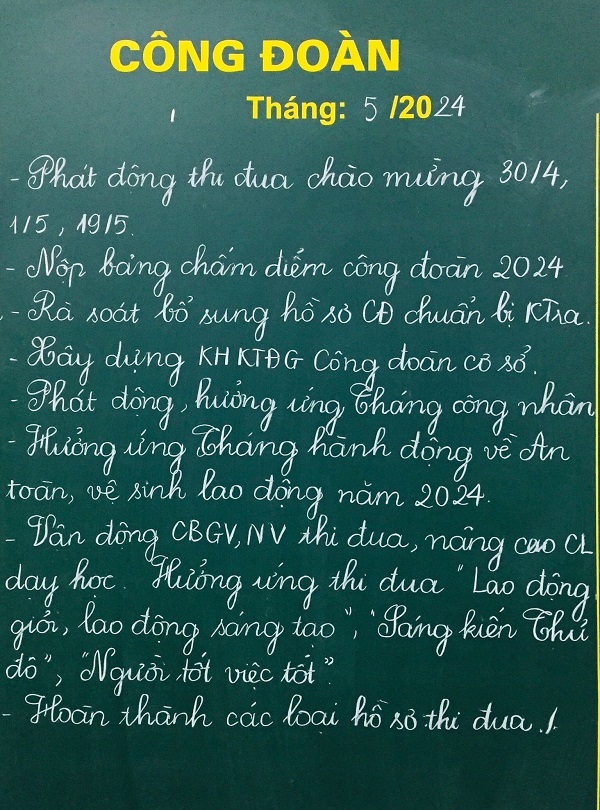 CÔNG ĐOÀN
Tháng: 5 /2024
- Phát động thi đua chào mừng 30/4,
1/5, 19/5.
- Nộp bảng chấm điểm công đoàn 2024
- Rà soát bổ sung hồ sơ CĐ chuẩn bị KTra.
- Xây dựng KH KTĐG Công đoàn cơ sở.
- Phát động, hưởng ứng Tháng công nhân
- Hưởng ứng Tháng hành động về An
toàn, vệ sinh lao động năm 2024.
- Vận động CBGV, NV thi đua, nâng cao CL
dạy học. Hưởng ứng thi đua "Lao động
giỏi, lao động sáng tạo", "Sáng kiến Thủ
đô", "Người tốt việc tốt".
- Hoàn thành các loại hồ sơ thi đua./.